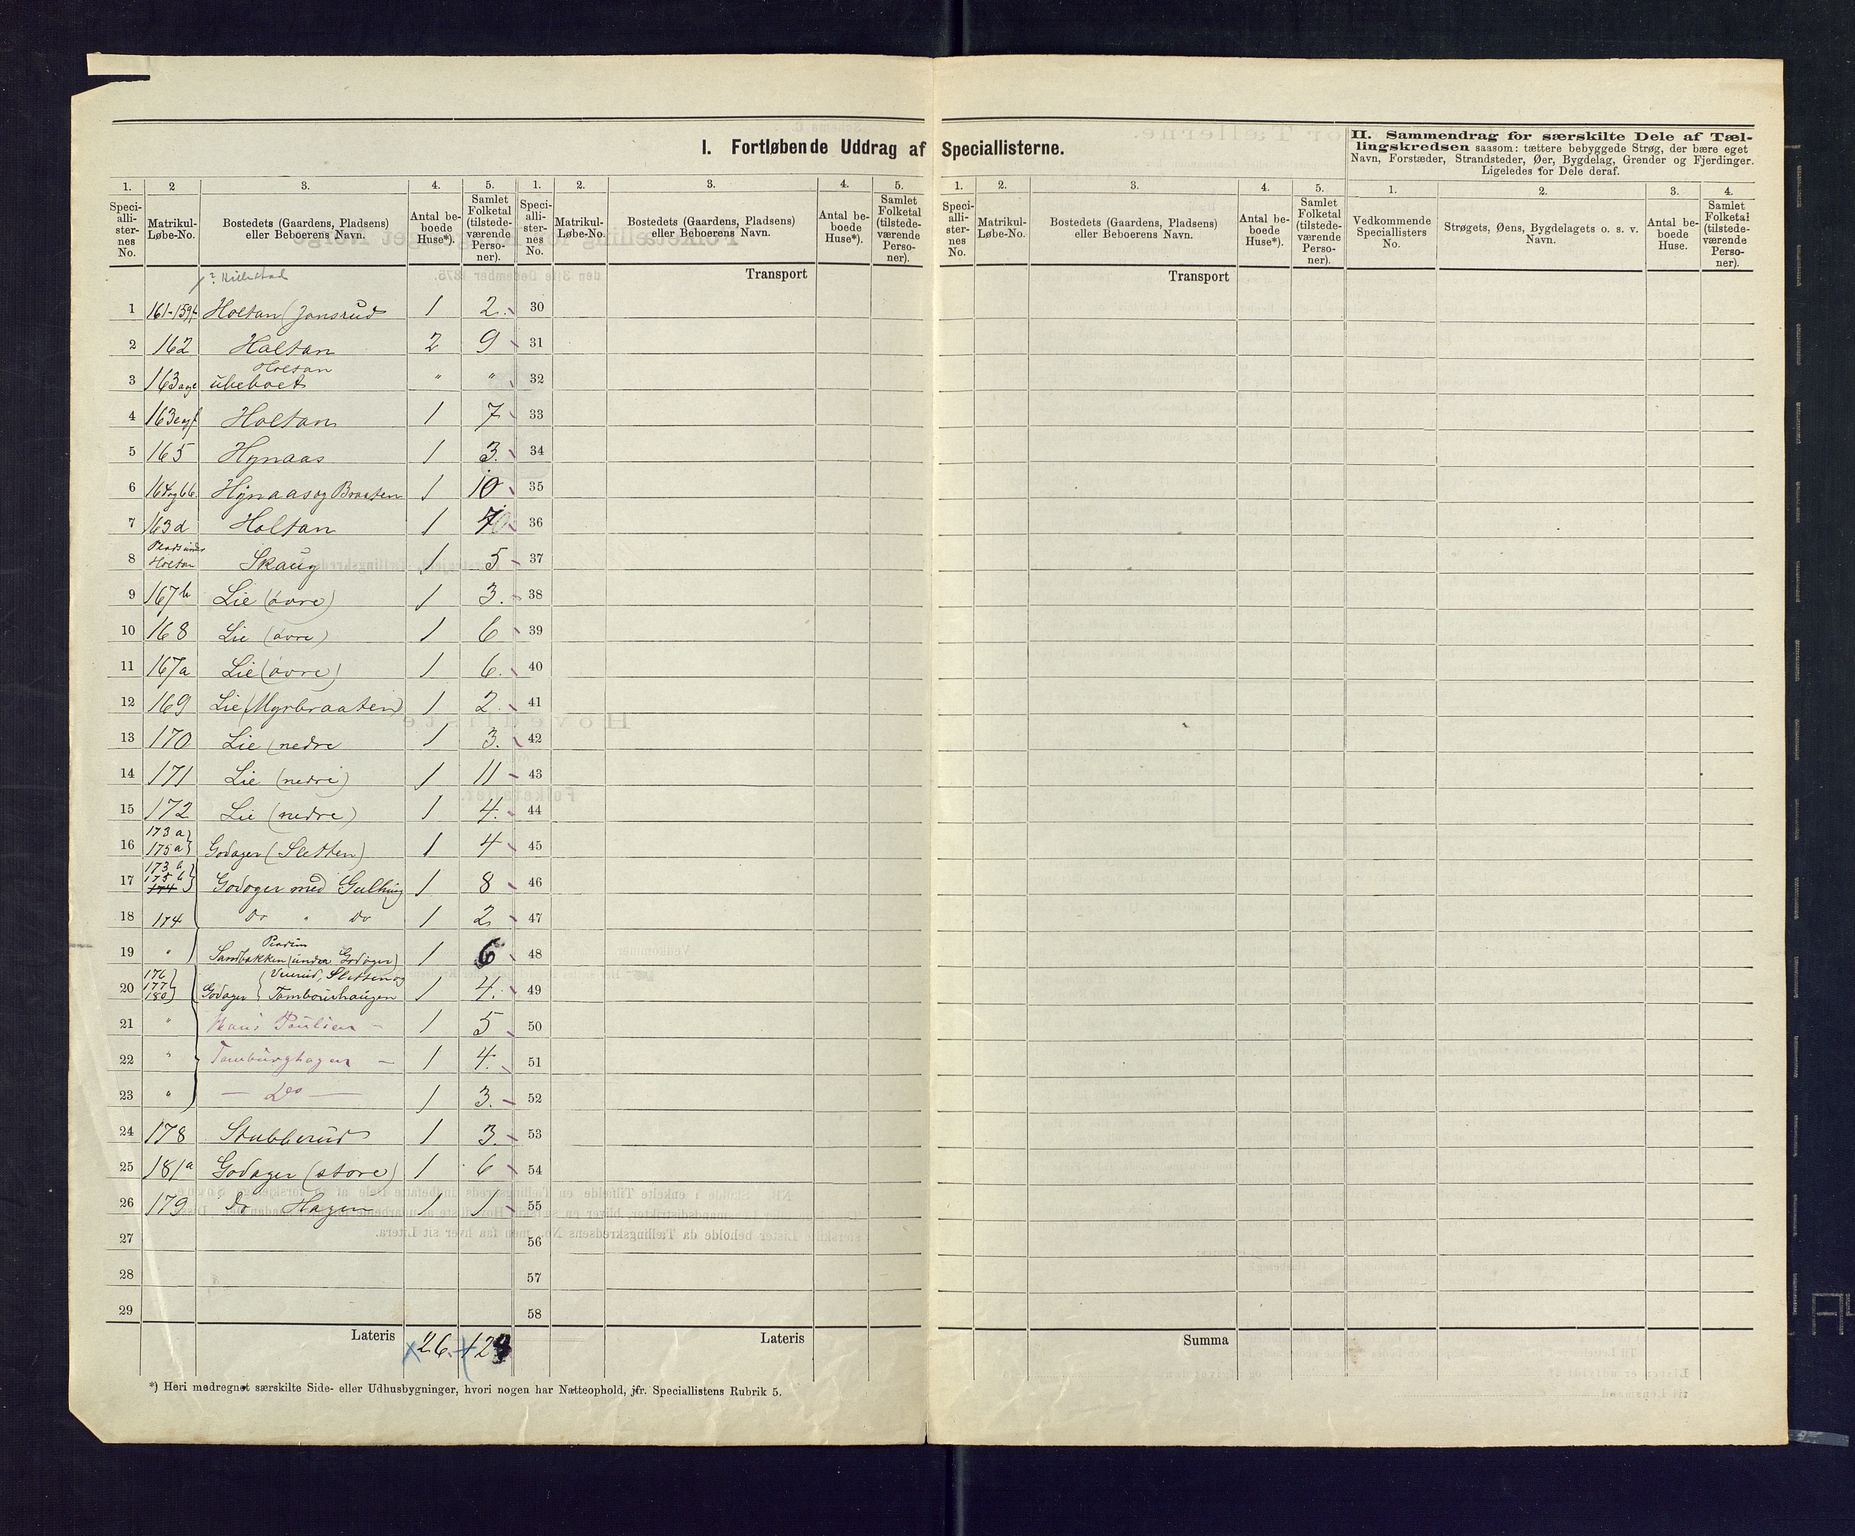 I. Fortløbende Uddrag af Speciallisterne.
II. Sammendrag for særskilte Dele af Tællingskredsen saasom: tættere bebyggede Strøg, der bære eget
Navn, Forstæder, Strandsteder, Øer, Bygdelag, Grender og Fjerdinger.
Ligeledes for Dele deraf.
1. 2 3. 4. 5. 1. 2. 3. 4. 5. 1. 2. 3. 4. 5. 1. 2. 3. 4.
Speciallisternes No. Matrikul-Løbe-No. Bostedets (Gaardens, Pladsens) eller Beboerens Navn. Antal beboede Huse*). Samlet Folketal (tilstedeværende Personer).
Speciallisternes No. Matrikul-Løbe-No. Bostedets (Gaardens, Pladsens) eller Beboerens Navn. Antal beboede Huse*). Samlet Folketal (tilstedeværende Personer).
Speciallisternes No. Matrikul-Løbe-No. Bostedets (Gaardens, Pladsens) eller Beboerens Navn. Antal beboede Huse*). Samlet Folketal (tilstedeværende Personer).
Vedkommende Speciallisters No. Strøgets, Øens, Bygdelagets o. s. v. Navn. Antal beboede Huse. Samlet Folketal (tilstedeværende Personer).
Transport Transport
1 161-159 Holtan (Jonsrud 1 2. 30
2 162 Holtan 2 9 31
Holtan
3 163 ubeboet " " 32
4 163 Holtan 1 7 33
5 165 Hynaas 1 3. 34
6 164 og 66. Hynaas og Braaten 1 10 35
7 163d Holtan 1 7 36
8 Plads under Holtan Skaug 1 5 37
9 167b Lie (øvre) 1 3. 38
10 168 Lie (øvre) 1 6 39
11 167a Lie (øvre) 1 6. 40
12 169 Lie (Myrbraaten) 1 2. 41
13 170 Lie (nedre 1 3. 42
14 171 Lie (nedre) 1 11 43
15 172 Lie (nedre) 1 4. 44
16 173a 175a Godager (Sletten) 1 4 45
17 173b 175b 174 Godager med Gulhaug 1 8 46
18 174 do " do 1 2 47
19 " Sandbakken (under Godager) 1 6 48
20 176 177 180 Godager Veierud, Sletten og Tambourhaugen 1 4. 49
21 " Hans Paulsen 1 5 50
22 " Tamburghagen 1 4. 51
23 " — Do — 1 3. 52
24 178 Stubberud 1 3. 53
25 181a Godager (store) 1 6 54
26 179 do Hagen 1 1 55
27 56
28 57
29 58
Lateris 26. 128 Lateris Summa
*) Heri medregnet særskilte Side- eller Udhusbygninger, hvori nogen har Natteophold, jfr. Speciallistens Rubrik 5.